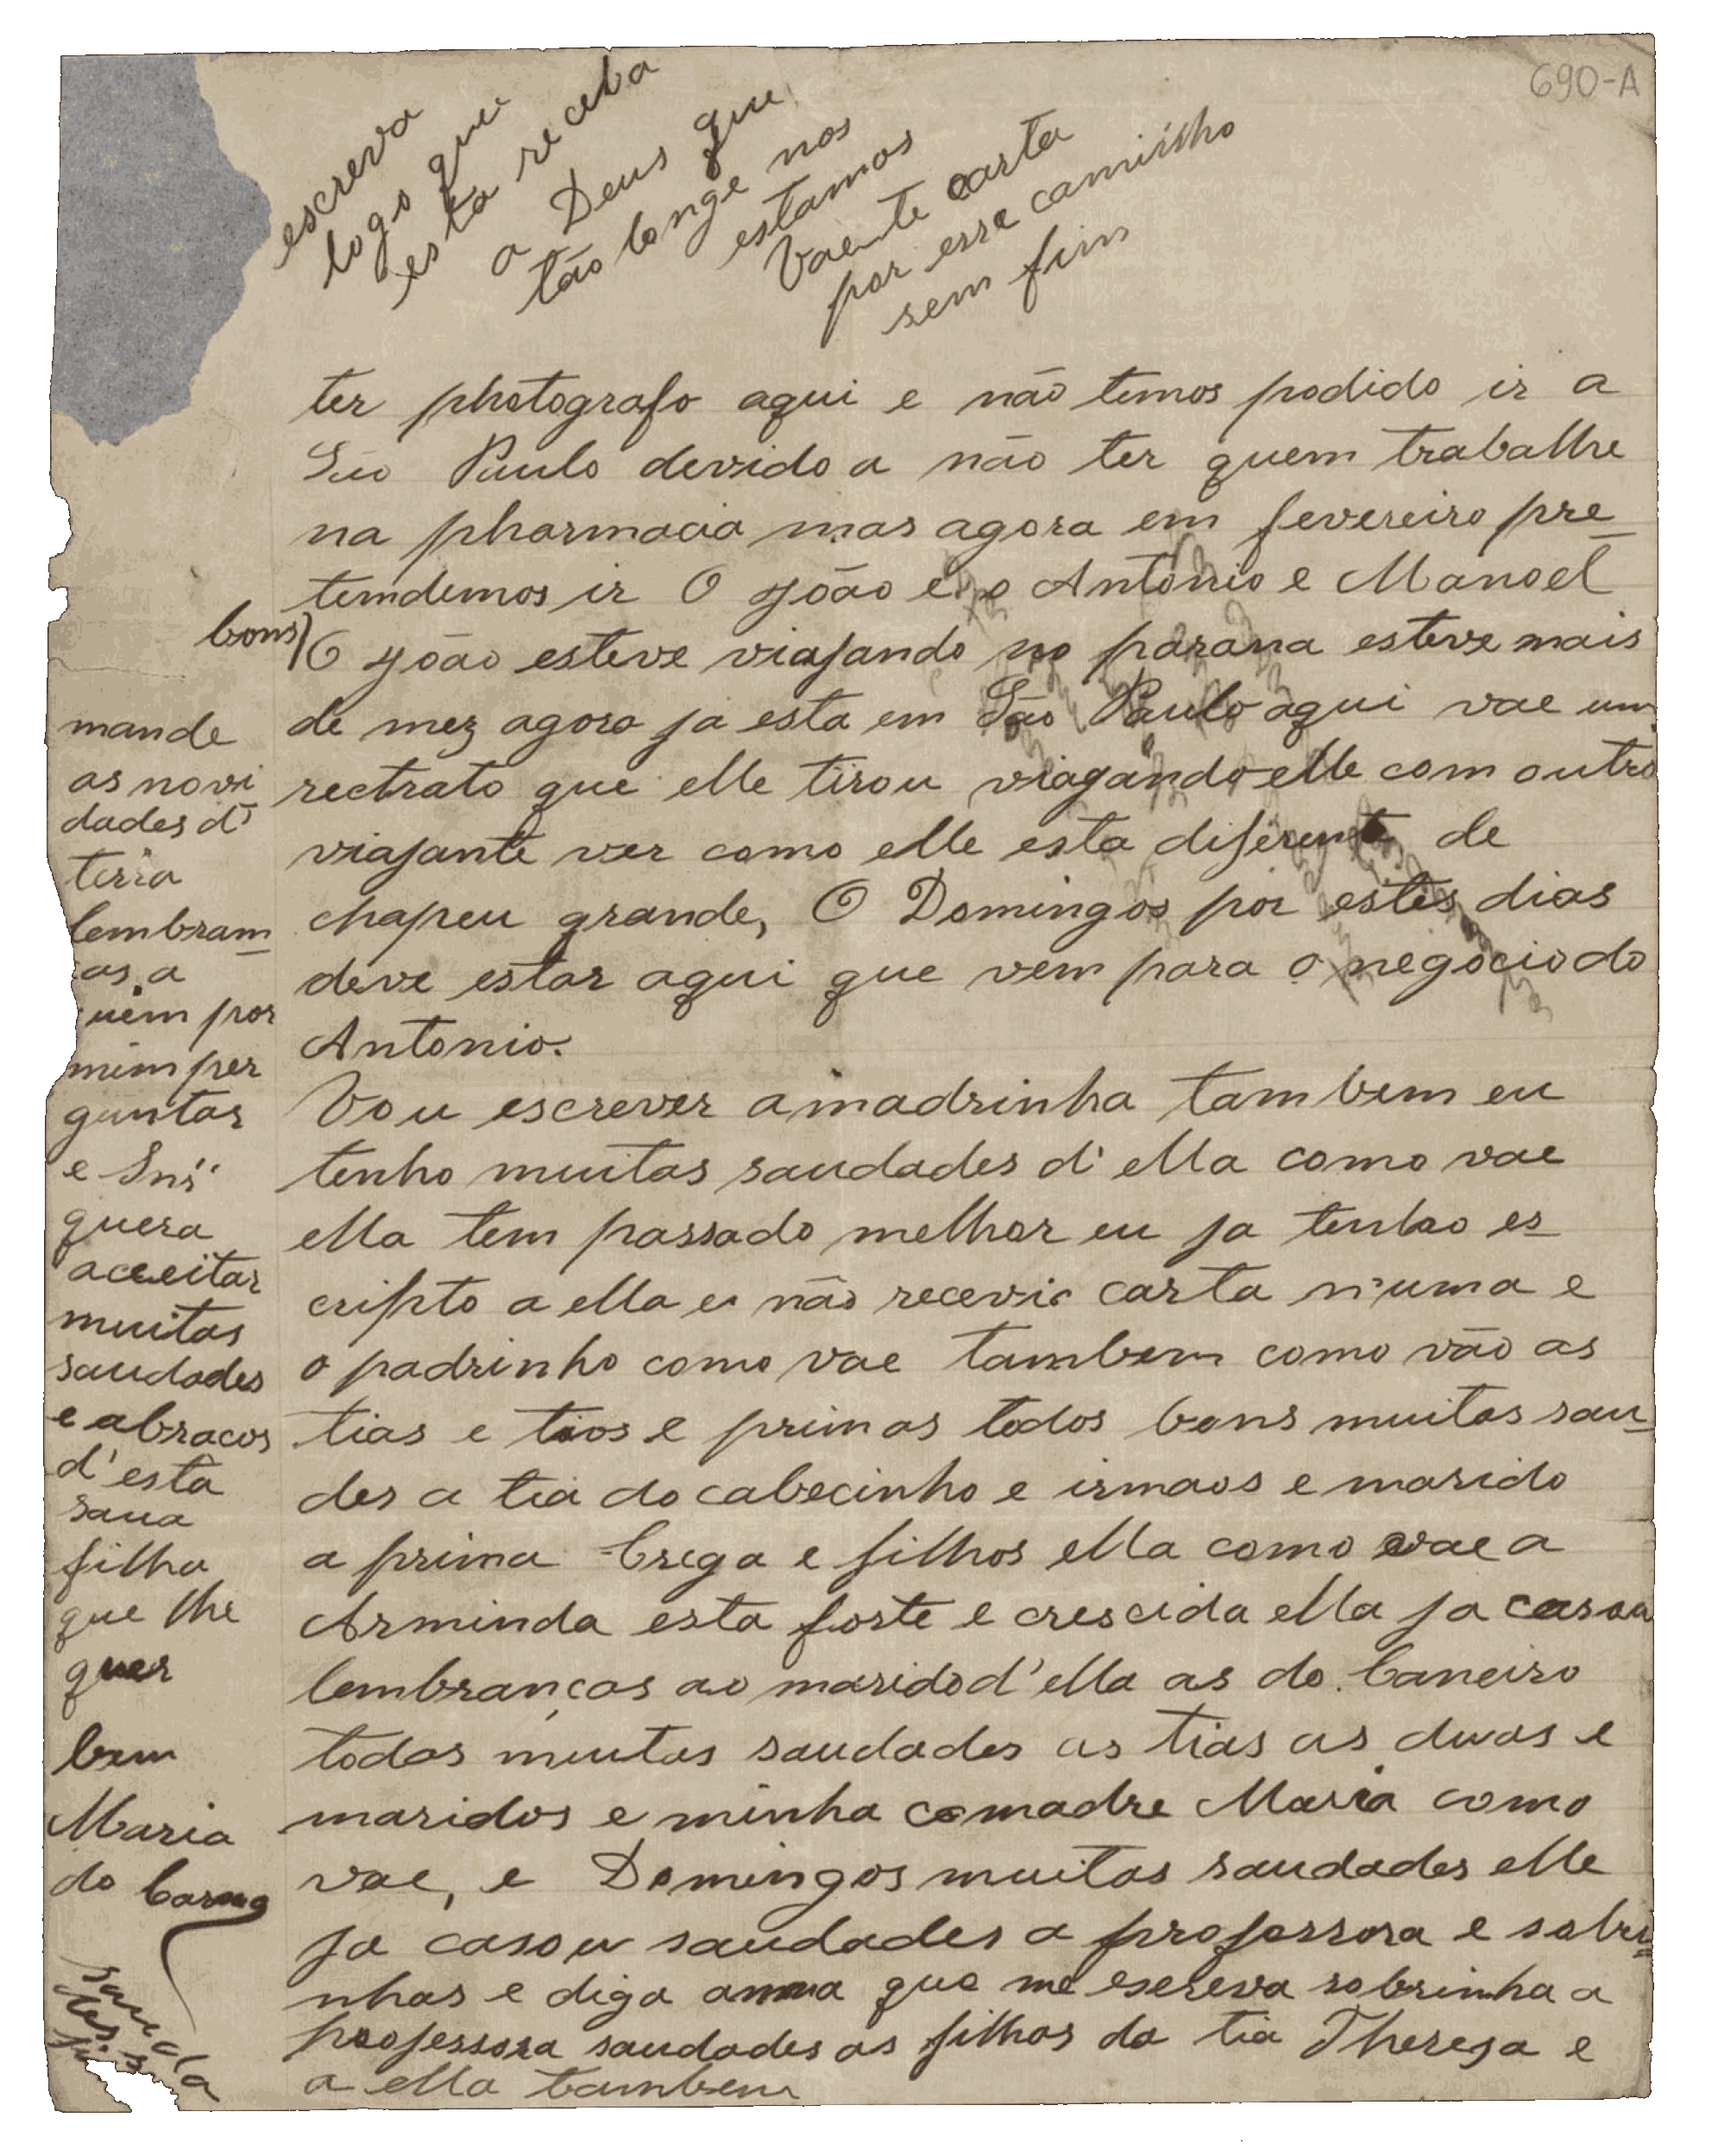 690-A
escreva
logo que
esta receba
a Deus que
tão longe nos
estamos
Vaente carta
por esse caminho
sem fim
ter photografo aqui e não temos podido ir a
São Paulo devido a não ter quem trabalhe
na pharmacia mas agora em fevereiro pre_
temdemos ir O João e o Antonio e Manoel
bons)
O João esteve viajando no parana esteve mais
de mez agora ja esta em São Paulo aqui vae um
rectrato que elle tirou viagando elle com outro
viajante ver como elle esta diferente de
chapeu grande, O Domingos por estes dias
deve estar aqui que vem para o negocio do
Antonio.
Vou escrever a madrinha tambem eu
tenho muitas saudades d'ella como vae
ella tem passado melhor eu ja tenho es_
cripto a ella e não recevi carta n'uma e
o padrinho como vae tambem como vão as
tias e tios e primas todos bons muitas sau_
des a tia do cabecinho e irmaos e marido
a prima Crega e filhos ella como vae a
Arminda esta forte e crescida ella ja casou
lembranças ao marido d'ella as do Caneiro
todas muitas saudades as tias as duas e
maridos e minha comadre Maria como
vae, e Domingos muitas saudades elle
ja casou saudades a professora e sobri_
nhas e diga a que me escreva sobrinha a
professora saudades as filhas da tia Thereza e
a ella tambem
mande
as novi
dades d'
terra
lembram_
as a
uem por
mim per
guntar
e
quera
acceitar
muitas
saudades
e abracos
d'esta
saua
filha
que lhe
quer
bem
Maria
do Carmo
sauda
des